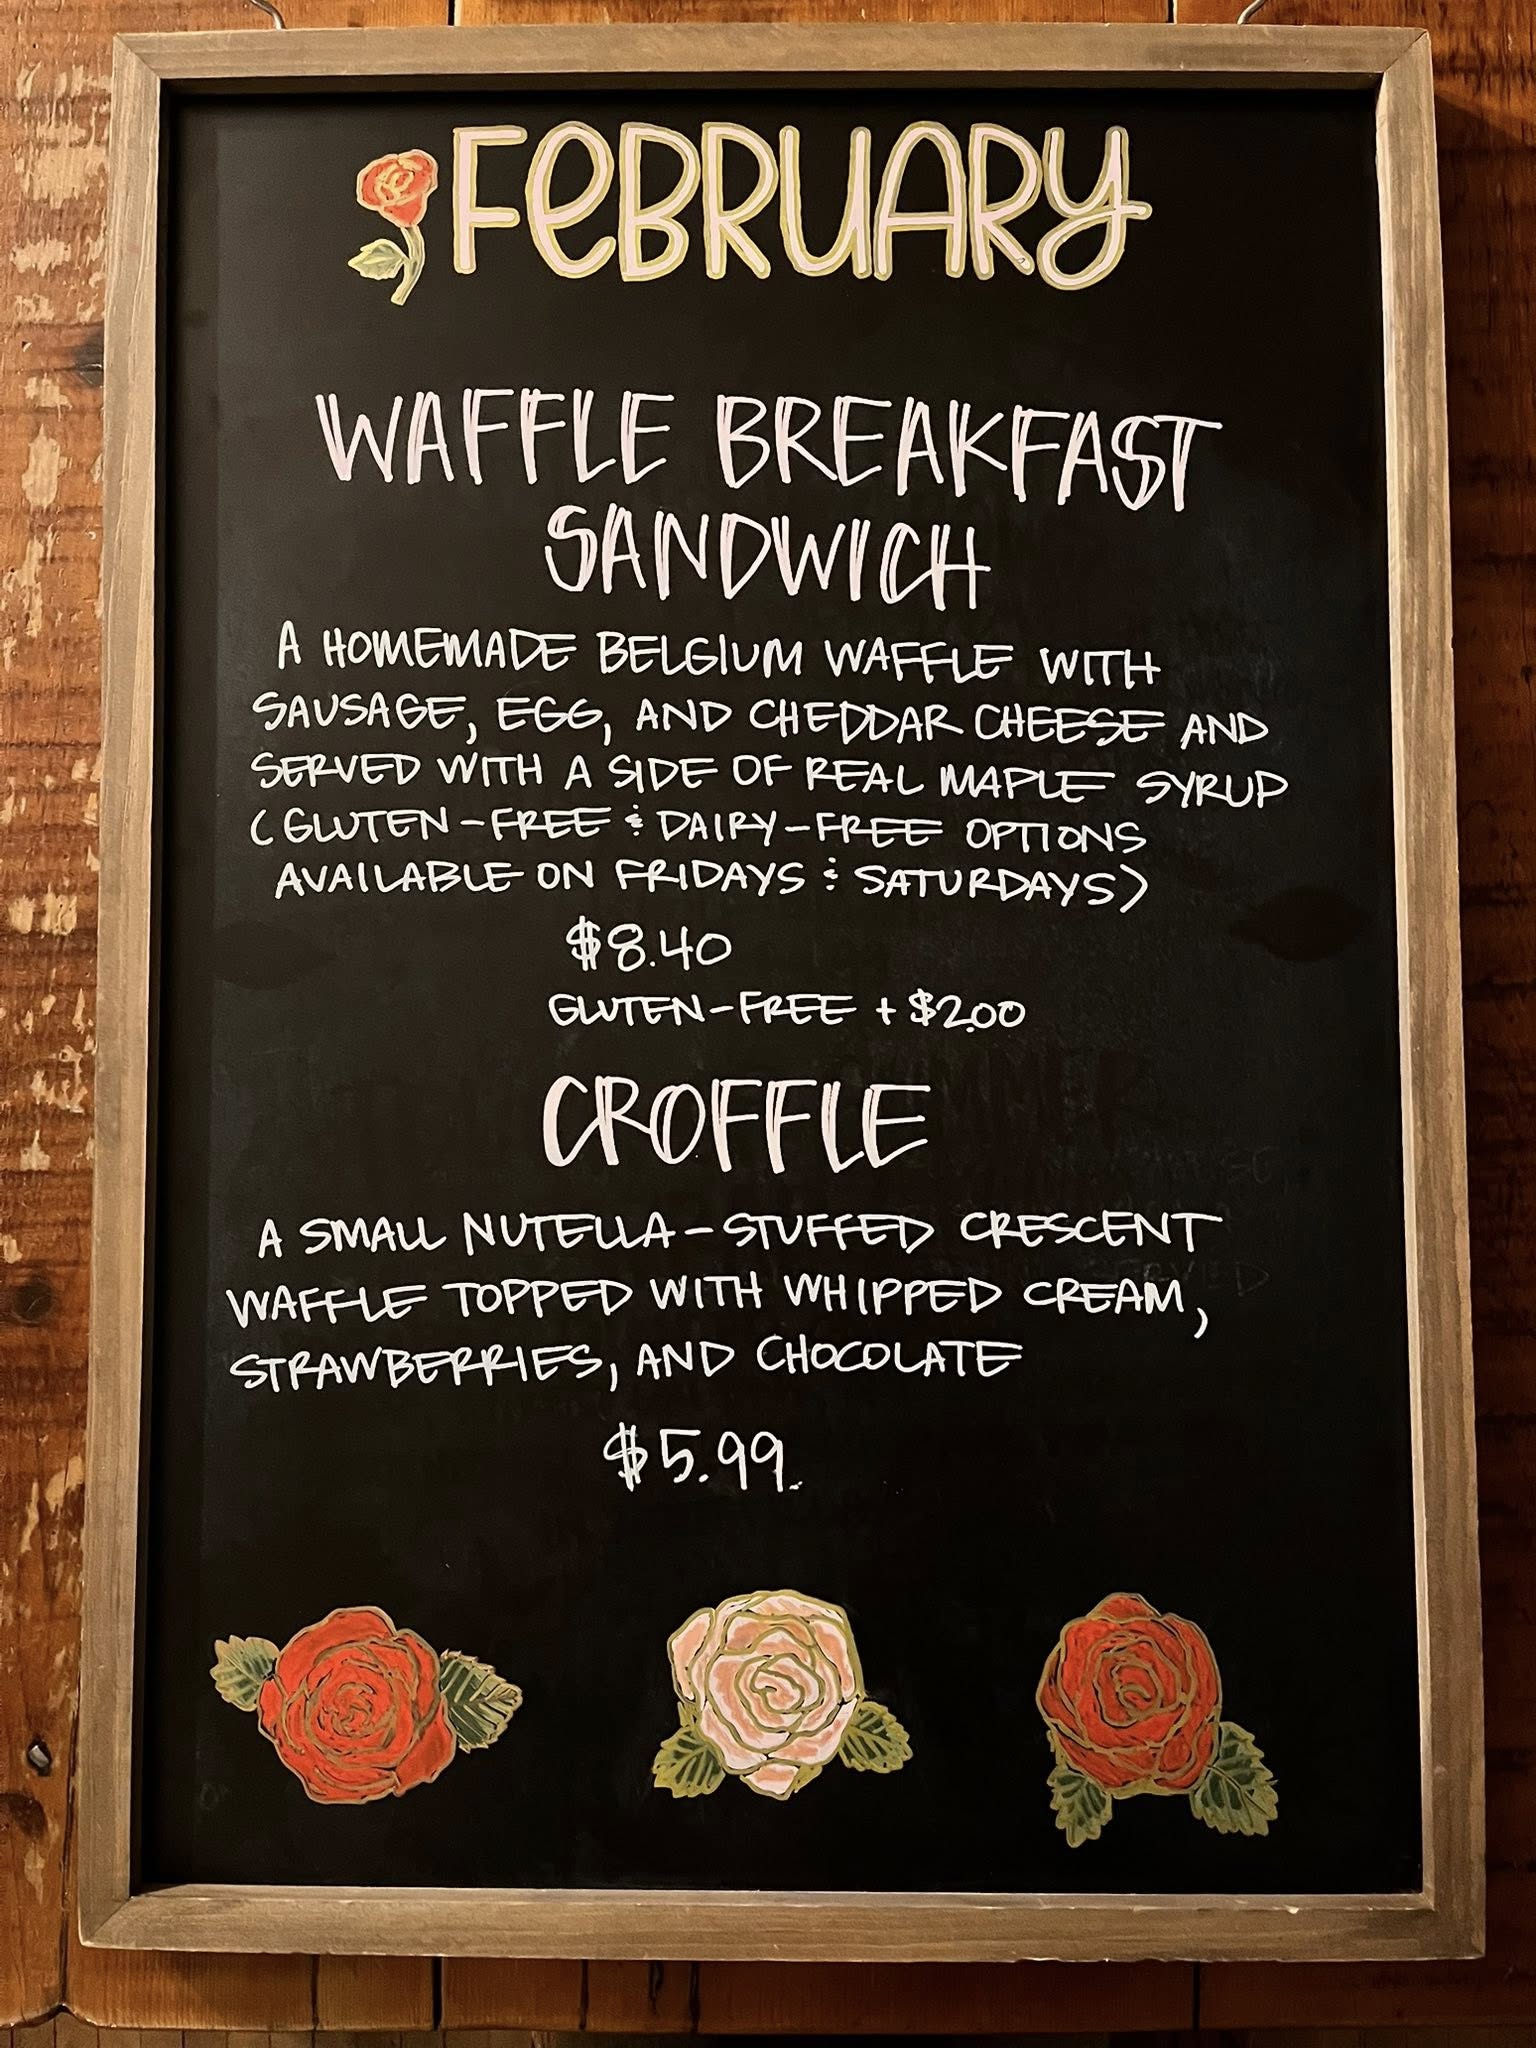 FEBRUARY
WAFFLE BREAKFAST
SANDWICH
A HOMEMADE BELGIUM WAFFLE WITH
SAUSAGE, EGG, AND CHEDDAR CHEESE AND
SERVED WITH A SIDE OF REAL MAPLE SYRUP
(GLUTEN-FREE & DAIRY-FREE OPTIONS
AVAILABLE ON FRIDAYS & SATURDAYS)
$8.40
GLUTEN-FREE + $2.00
CROFFLE
A SMALL NUTELLA-STUFFED CRESCENT
WAFFLE TOPPED WITH WHIPPED CREAM,
STRAWBERRIES, AND CHOCOLATE
$5.99